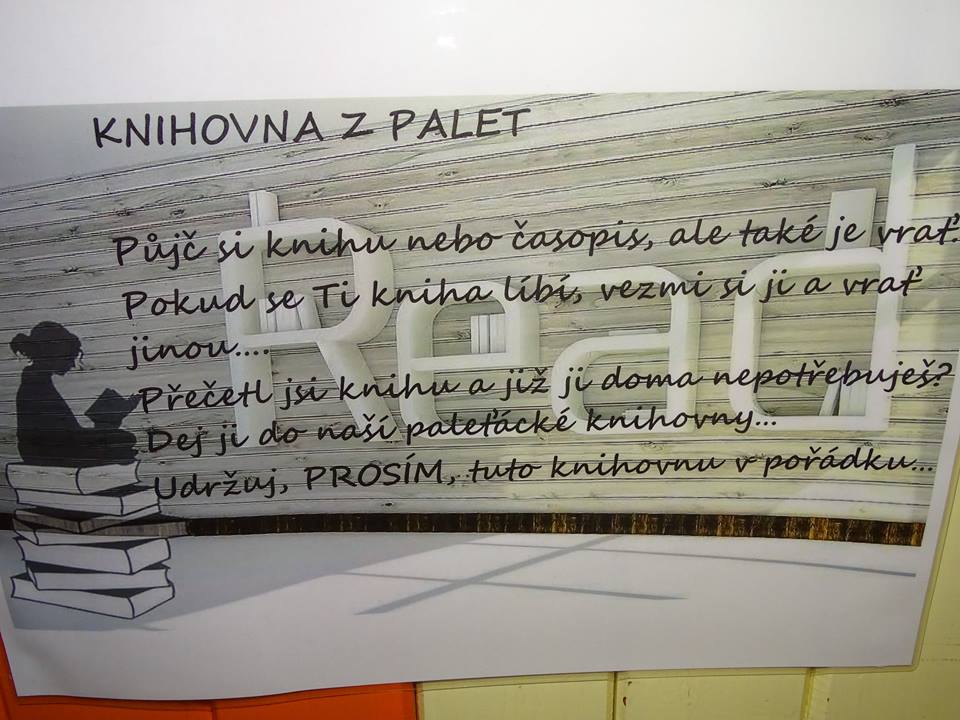 KNIHOVNA Z PALET
Půjč si knihu nebo časopis, ale také je vrať.
Pokud se Ti kniha líbí, vezmi si ji a vrať
jinou....
Přečetl jsi knihu a již ji doma nepotřebuješ?
Dej ji do naší paleťácké knihovny...
Udržuj, PROSÍM, tuto knihovnu v pořádku...
Read